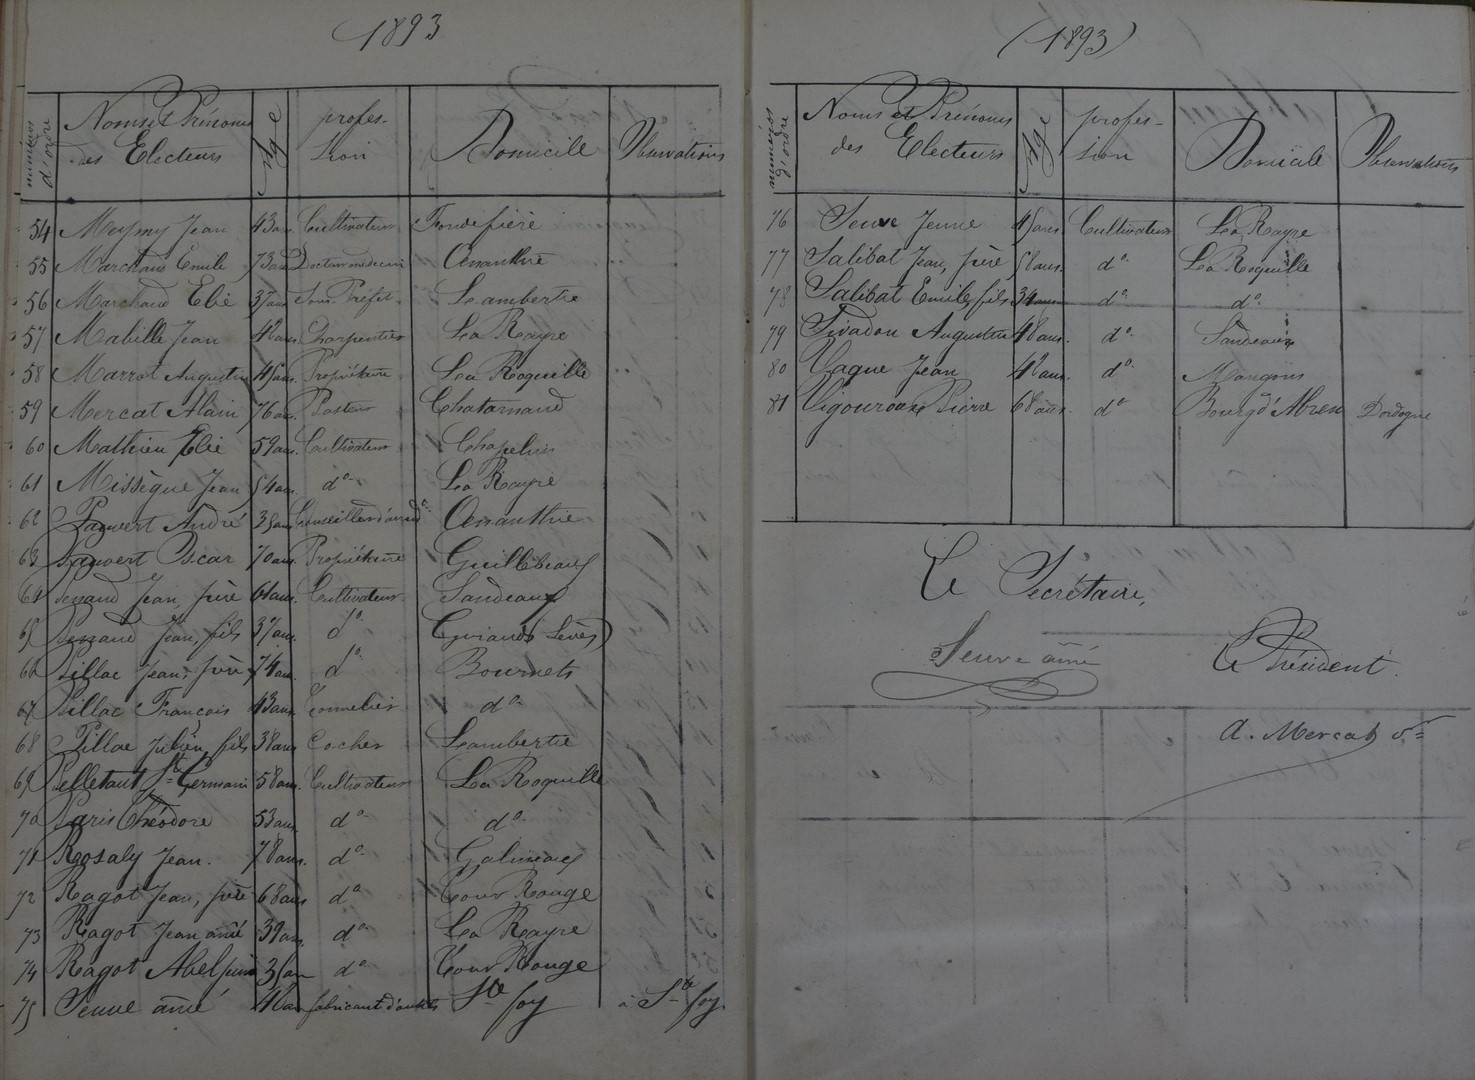 1893
numéros d'ordre Noms et Prénoms des Electeurs Age profes- sion Domicile Observations
54 Meymy Jean 43 ans Cultivateur Fondefière
55 Marchand Emile 73 ans Docteur médecin Œnanthie
56 Marchand Elie 37 ans Sous Préfet Lambertie
57 Mabille Jean 42 ans Charpentier La Rayre
58 Marrot Augustin 45 ans. Propriétaire La Roquille
59 Mercat Alain 76 ans Pasteur Chatarnaud
60 Mathieu Elie 59 ans Cultivateur Chapelins
61 Missègue Jean 54 ans. do La Rayre
62 Pauvert André 35 ans Œnanthie
63 Pauvert Oscar 70 ans Propriétaire
64 Penaud Jean, père 61 ans. Cultivateur Sandeaux
65 Penaud Jean, fils 37 ans. do
66 Pillac Jean, père 74 ans. do Bournets
67 Pillac François 43 ans Tonnelier do
68 Pillac Julien, fils 38 ans Cocher Lambertie
69 Pelletant St Germain 58 ans. Cultivateur La Roquille
70 Paris Théodore 53 ans do do
71 Rosaly Jean. 78 ans. do
72 Ragot Jean, père 68 ans do Tour Rouge
73 Ragot Jean ainé 39 ans. do La Rayre
74 Ragot Abel do Tour Rouge
75 Seuve ainé fabricant d'outils Ste foy à Ste foy.
(1893)
numéros d'ordre Noms et Prénoms des Electeurs Age profes- sion Domicile Observations
76 Seuve Jeune 45 ans Cultivateur La Rayre
77 Salibat Jean, père 58 ans. do La Roquille
78 Salibat Emile, fils 34 ans do do
79 Sivadon Augustin 48 ans. do Sandeaux
80 Vague Jean 42 ans. do Mangons
81 Vigouroux Pierre 68 ans. do Dordogne
Le Secrétaire,
Seuve ainé
Le Président.
A. Mercat